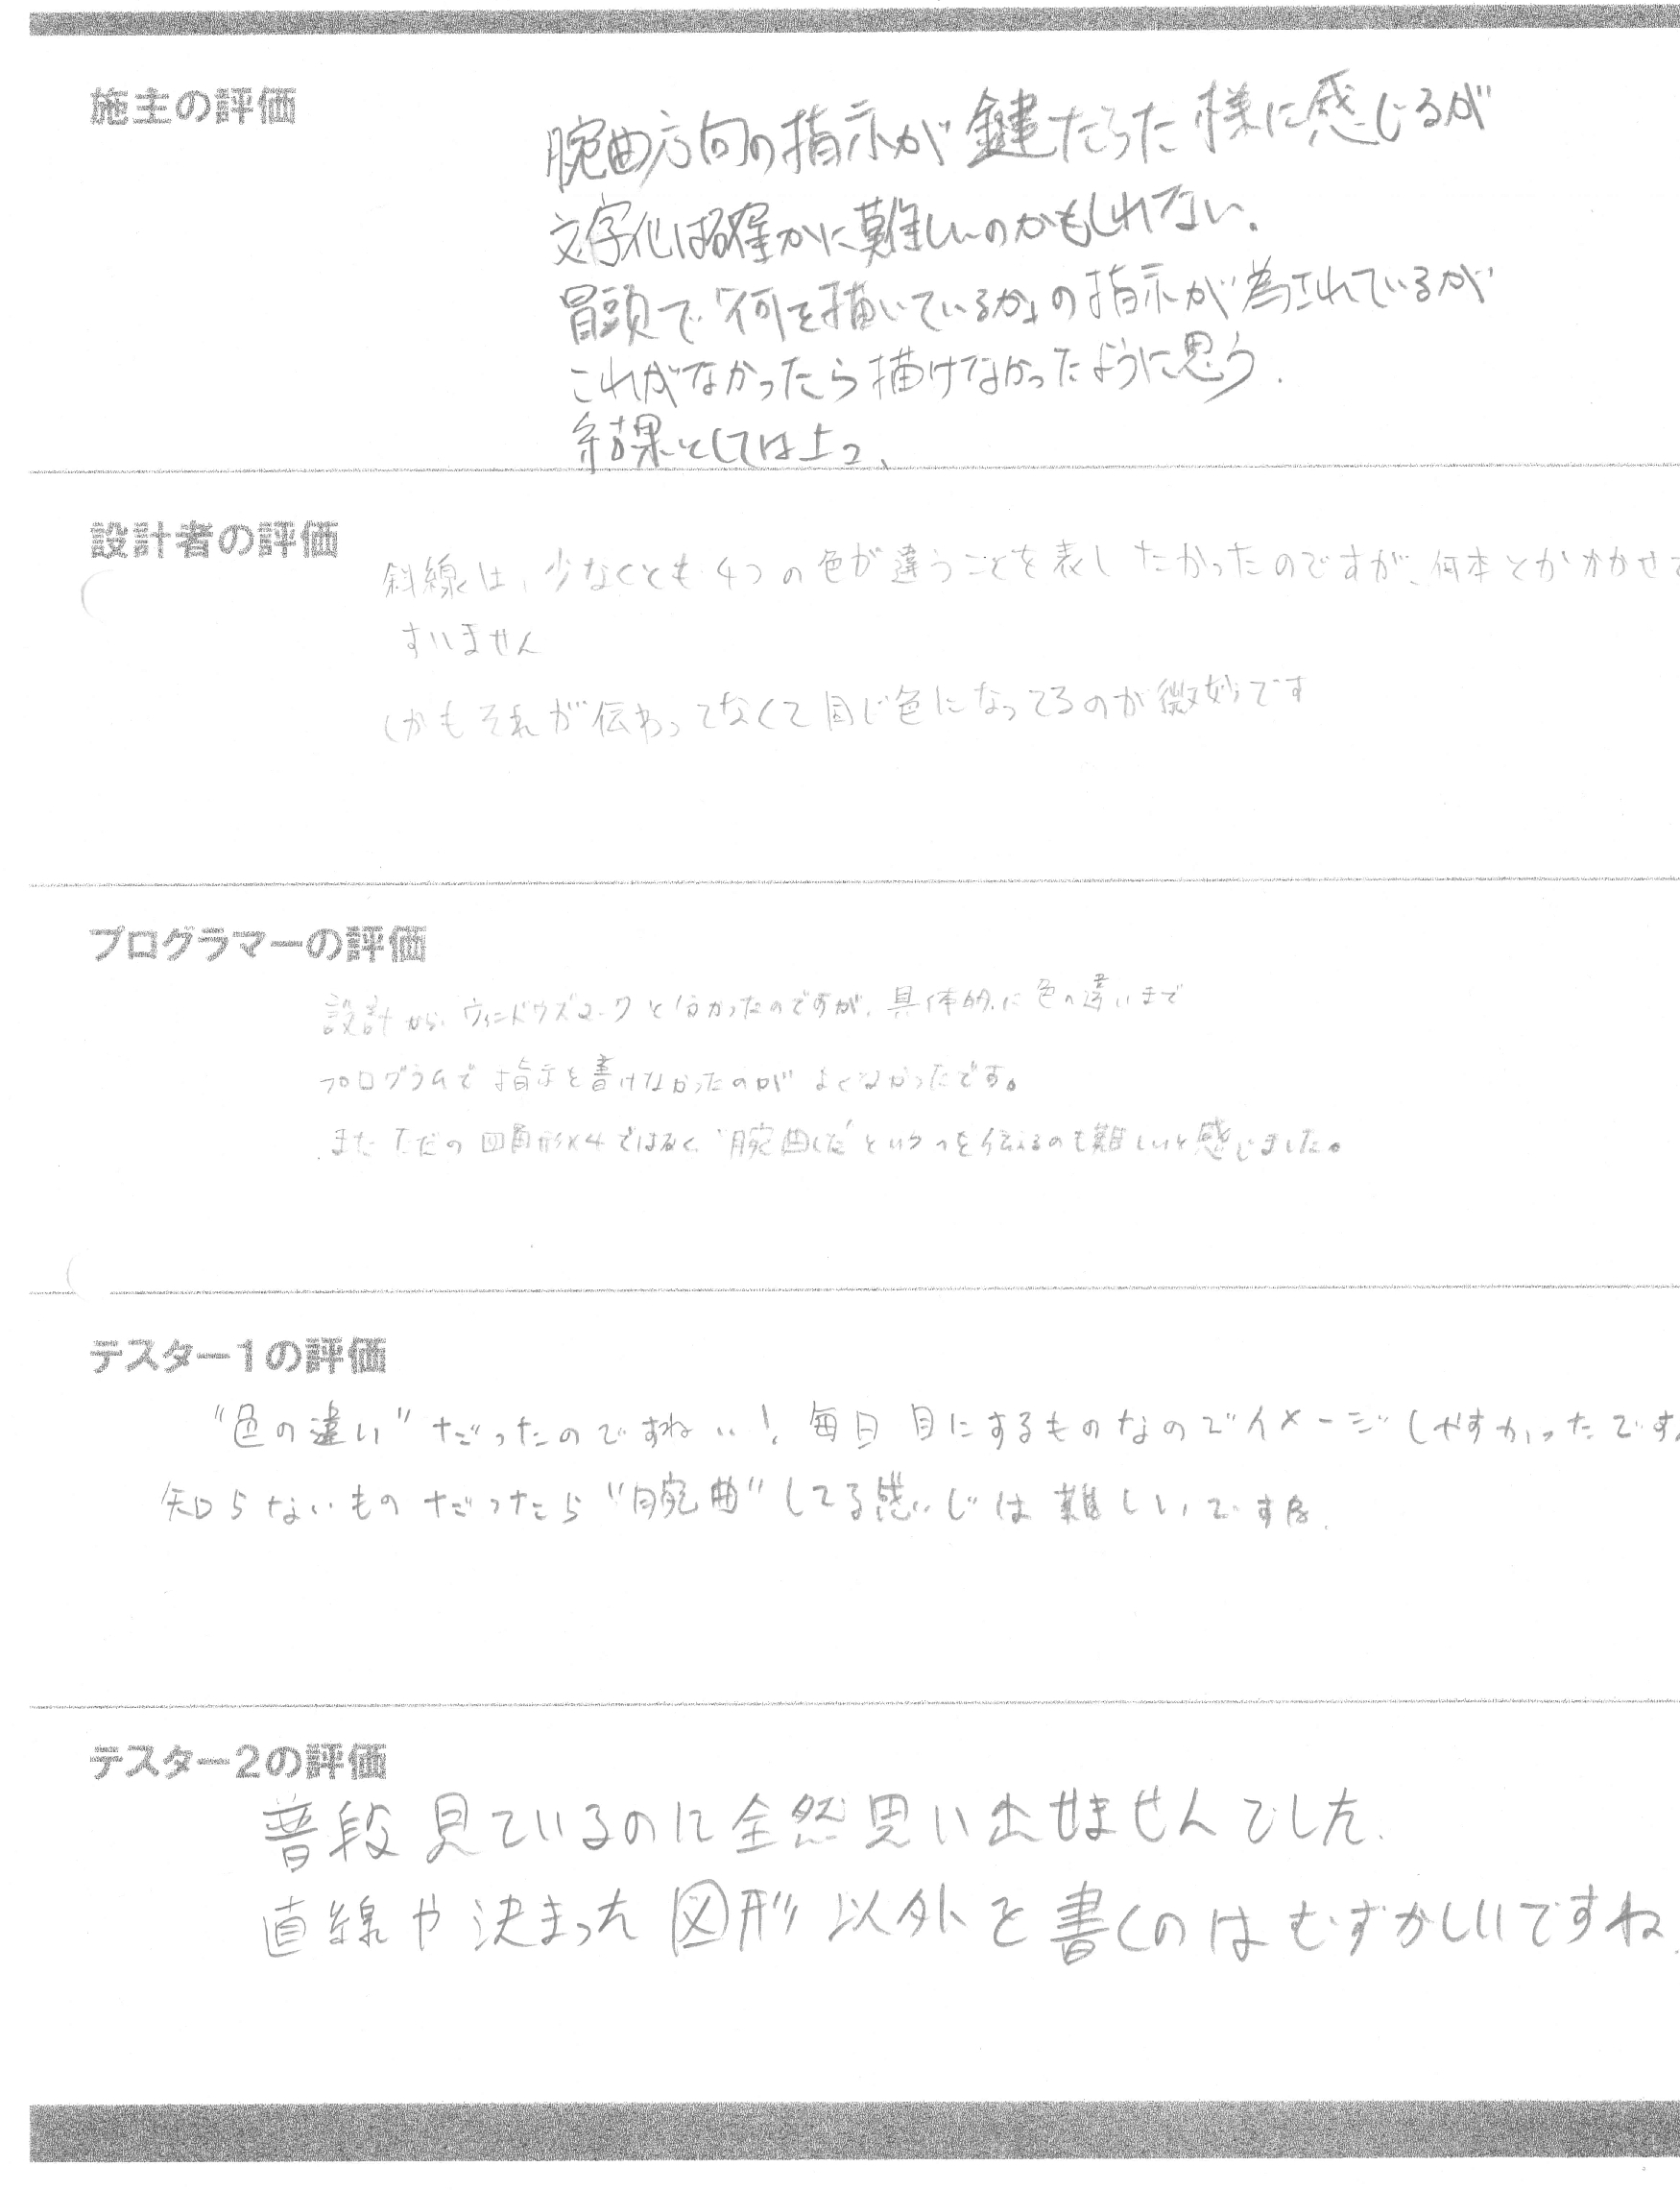 施主の評価
腕曲方向の指示が鍵だった様に感じるが
文字化は確かに難しいのかもしれない。
冒頭で「何を描いているか」の指示が為されているが
これがなかったら描けてなかったように思う.
結果としては上
設計者の評価
斜線は、少なくとも4つの色が違うことを表したかったのですが、何本とかかかせて
すいません
しかもそれが伝わってなくて同じ色になってるのが微妙です
プログラマーの評価
設計から、ウィンドウズマークと分かったのですが、具体的に色の違いまで
プログラムで指示を書けなかったのがよくなかったです。
またただの四角形×4ではなく、"腕曲した"というのを伝えるのも難しいと感じました。
テスター1の評価
"色の違い"だったのですね…! 毎日目にするものなのでイメージしやすかったです。
知らないものだったら"腕曲"してる感じは難しいですね.
テスター2の評価
普段見ているのに全然思い出せませんでした.
直線や決まった図形以外を書くのはむずかしいですね.